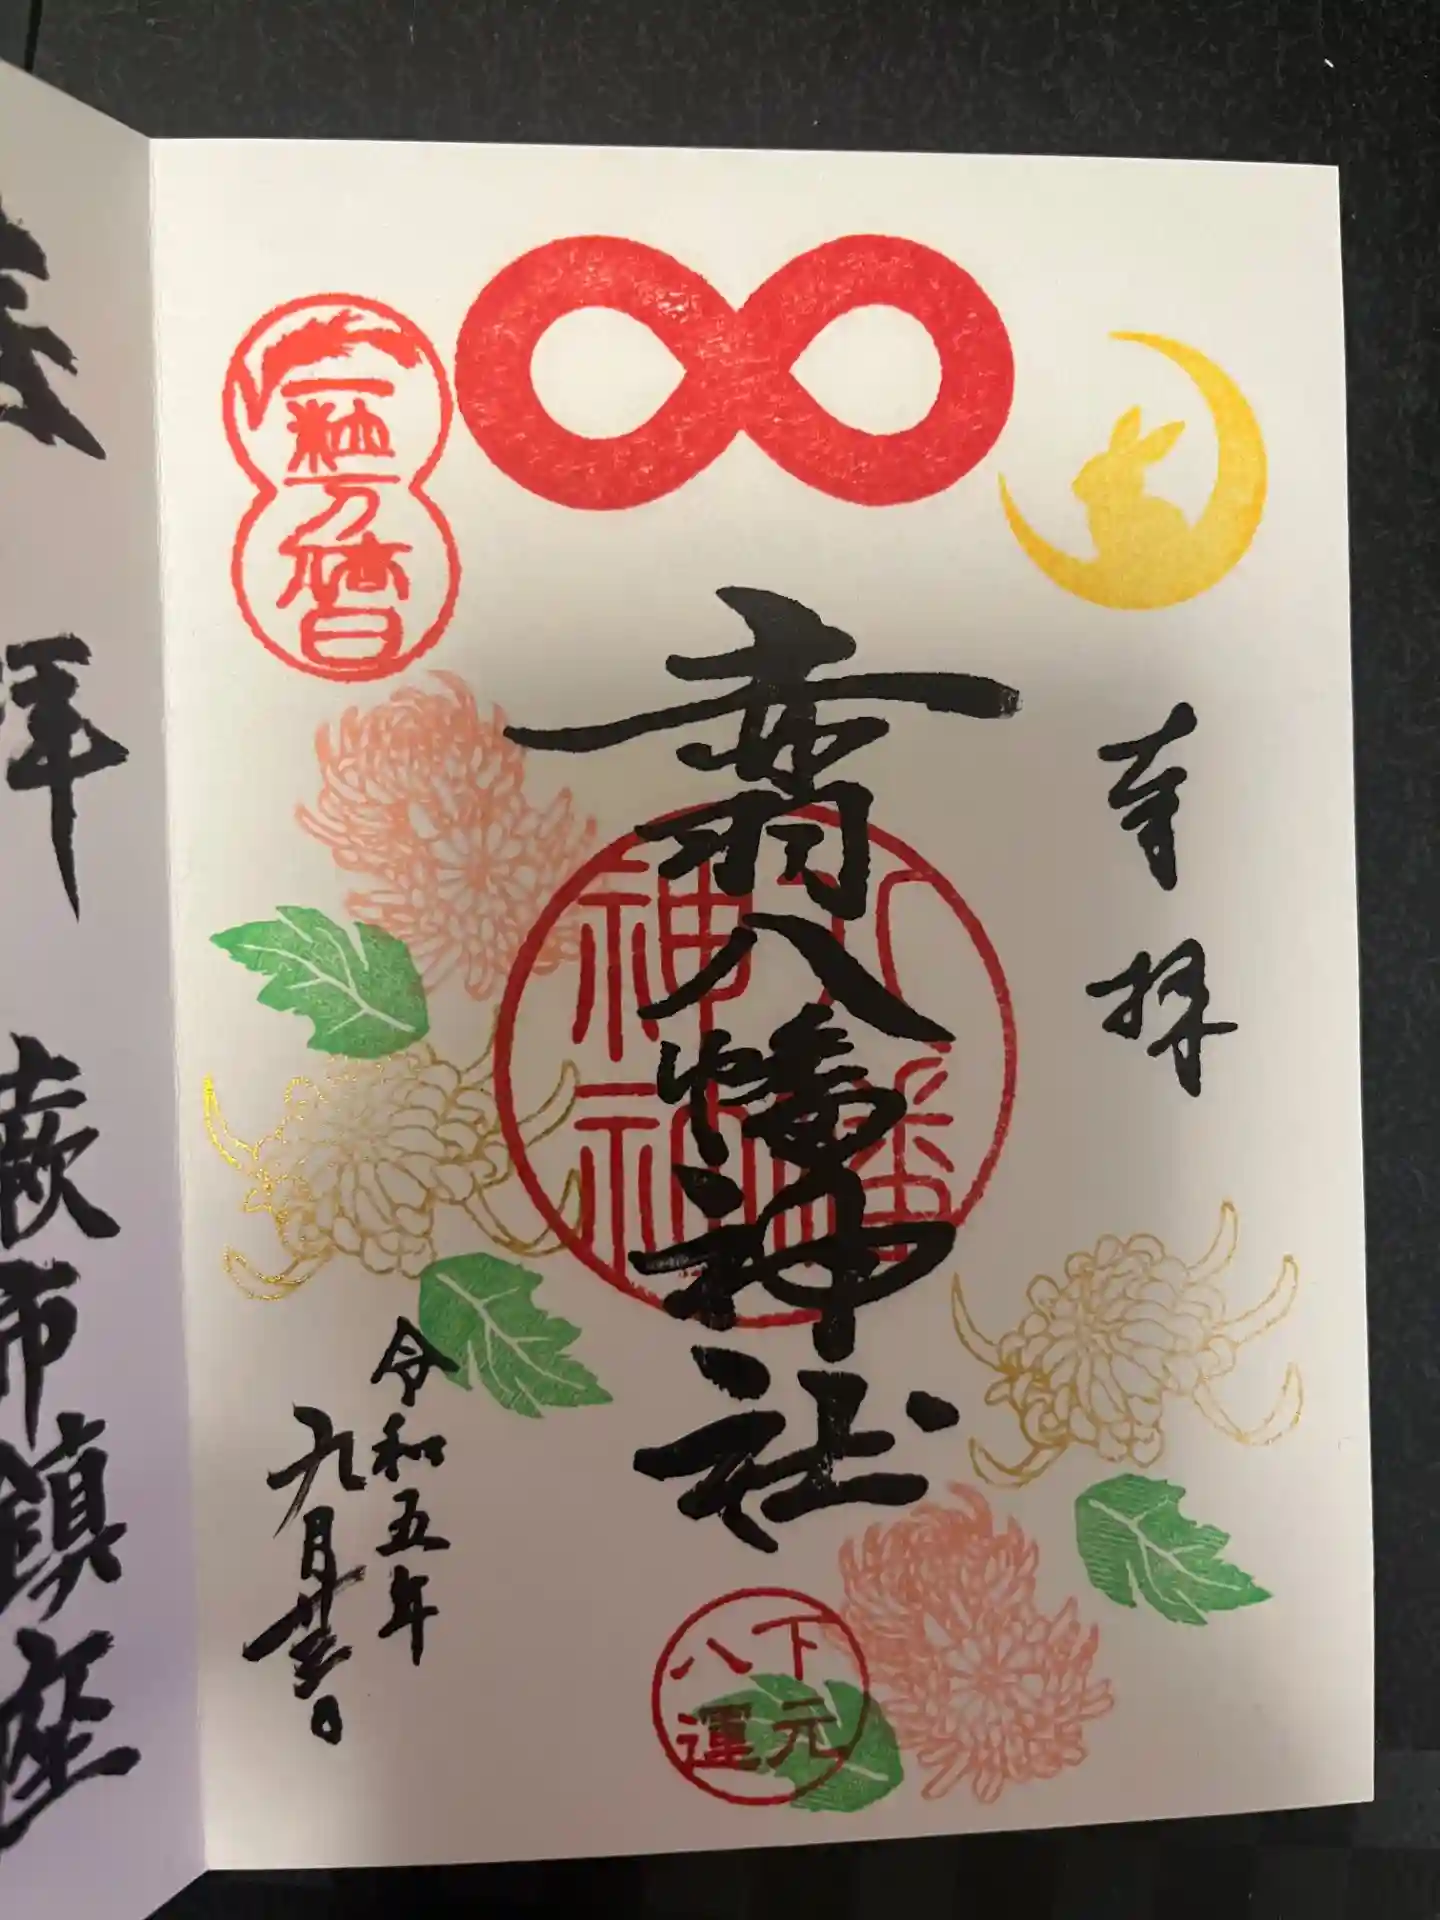 奉拝
赤羽八幡神社
八幡神社
一粒万倍日
令和五年
九月廿日
下元
八運
拝
蕨市鎮座